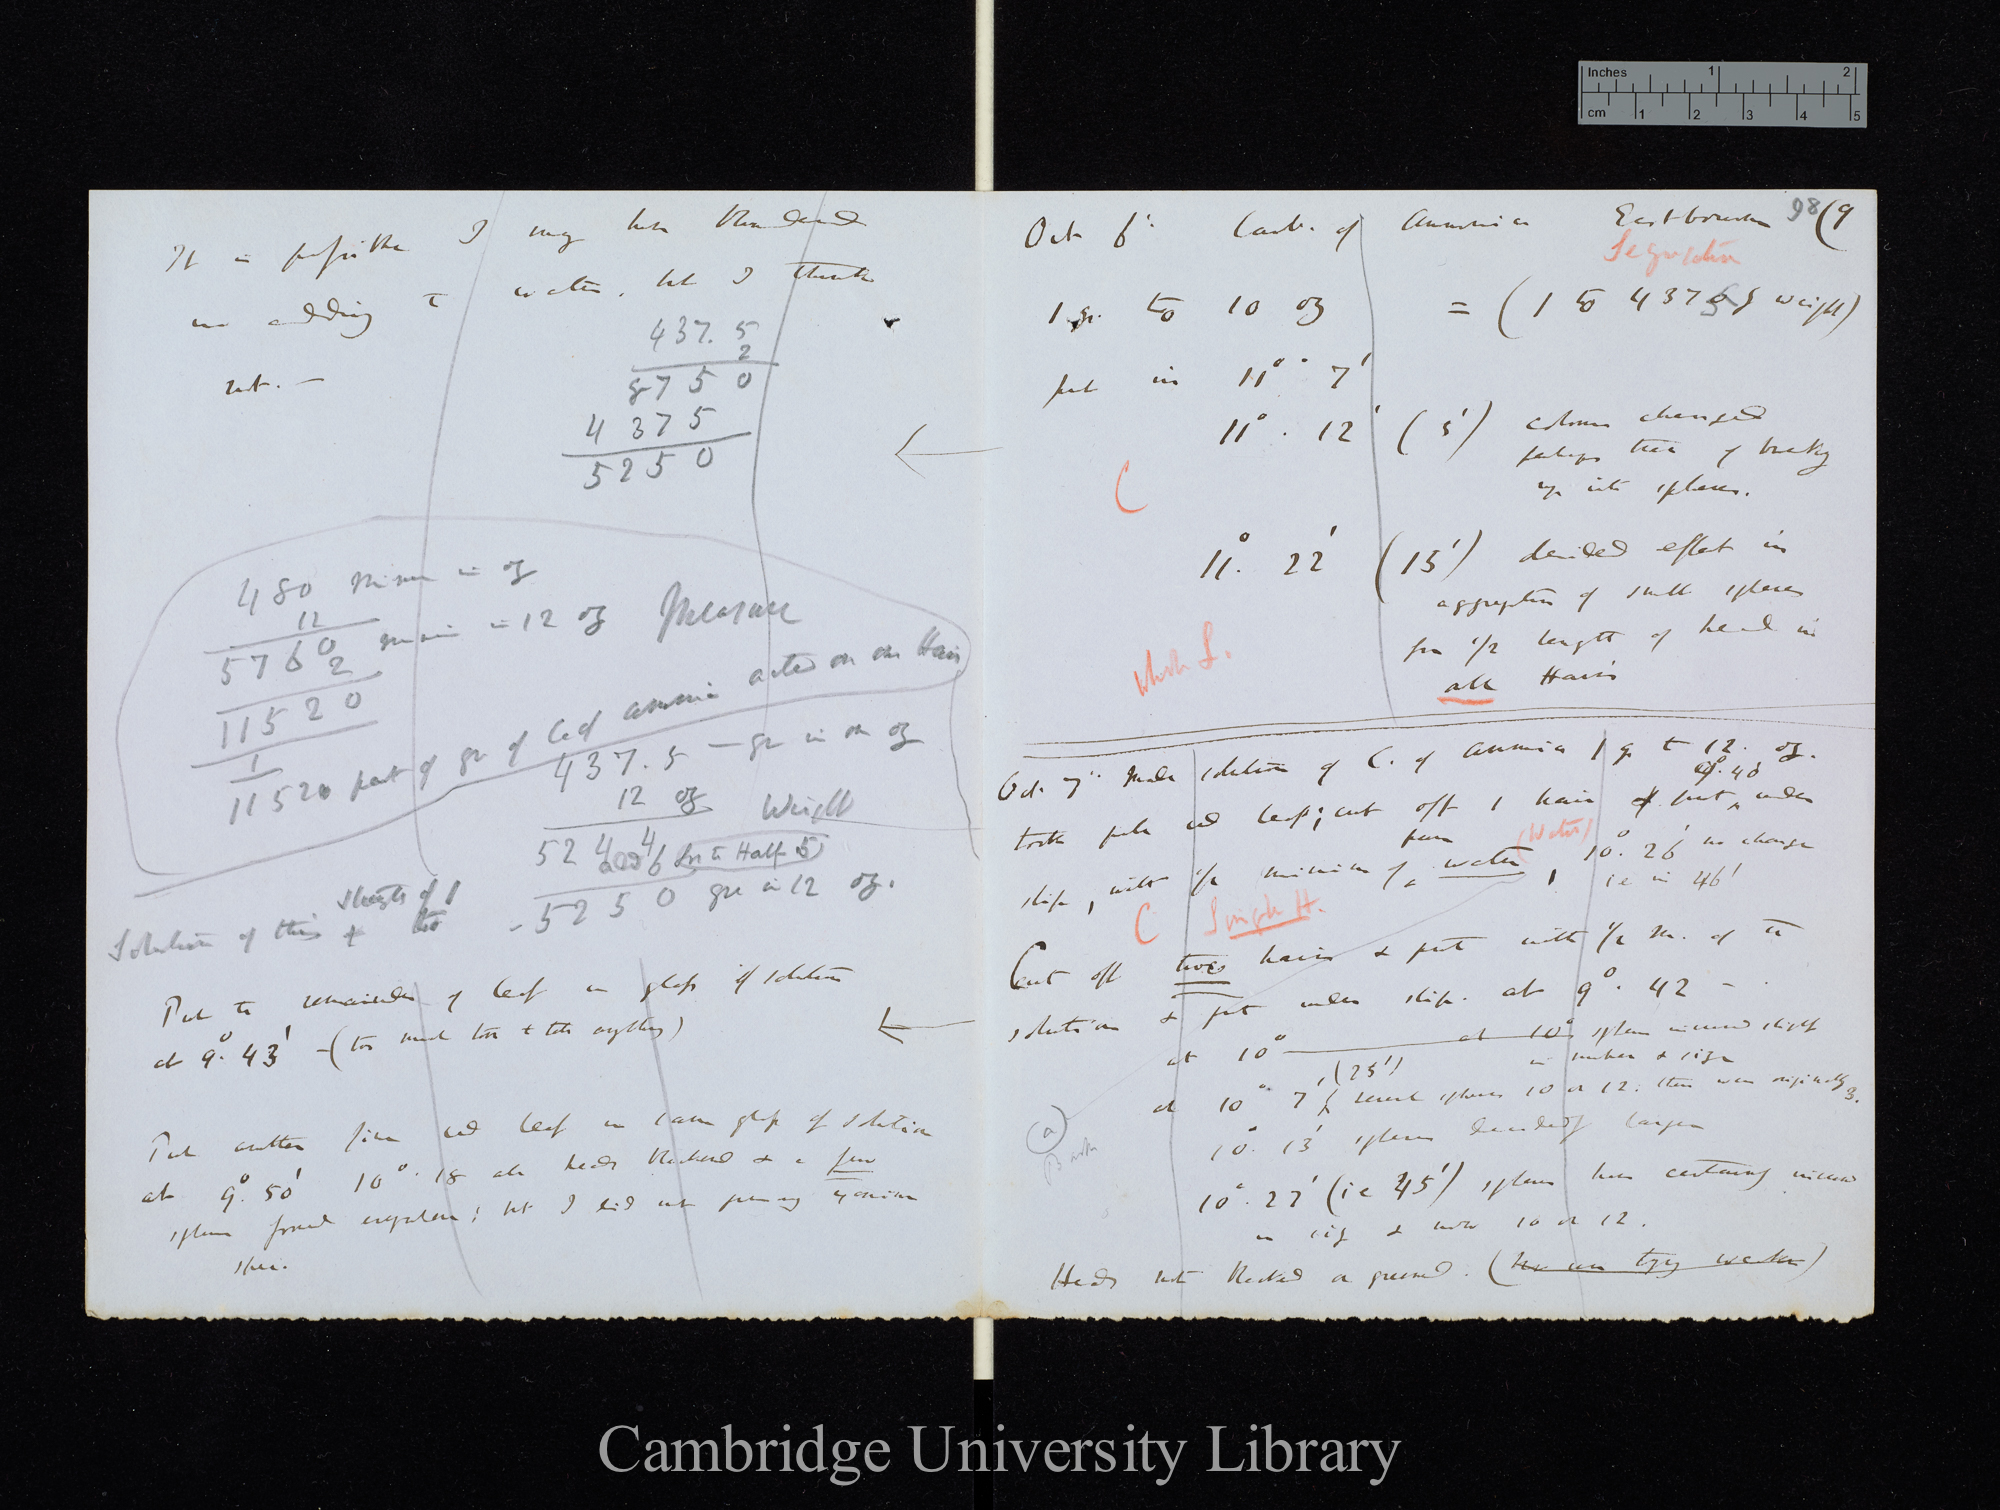 It is possible I may have blundered
in adding to water, but I think
not. —
437.5
2
8750
4375
5250
480 minims in oz
12
5760 minims in 12 oz Measure
2
11520
1
11520 part of gr of C of ammonia acted on one Hair
437.5 — gr in one oz
12 oz Weight
5244
add 6 for the Half 5
5250 grs in 12 oz.
Solution of this strength of 1 to
Put the remainder of leaf in glass of solution
at 9°. 43' — (too much torn to tell anything)
Put another fine red leaf in same glass of solution
at 9°. 50' 10°. 18 all heads blackened & a few
spheres formed anywhere; but I did not
Oct 6th Carb. of Ammonia Eastbourne 98 (9
Segregation
1 gr. to 10 oz = (1 to 4375 weight)
put in 11° 7'
11°. 12' (5') colour changed
perhaps trace of breaking
up into spheres.
C
11°. 22' (15') decided effect in
aggregation of small spheres
for 1/2 length of head in
all Hairs
Whole L.
Oct. 7th Made solution of C. of Ammonia 1 gr to 12. oz.
9°. 40
took pale red leaf; cut off 1 hair & put under
slip, with 1/2 minim of pure water, (Water) 10°. 26' no change
ie in 46'
C Single H.
Cut off two hairs & put with 1/2 m. of the
solution & put under slip. at 9°. 42 —
at 10° at 10° spheres increased slightly
in number & size
at 10° 7 (25') several spheres 10 or 12. there were originally 3.
(a)
10°. 13' spheres decidedly larger
10°. 27' (ie 45') spheres have certainly increased
in size & now 10 or 12.
Heads not blacked or greened. (
Inches 1 2
cm 1 2 3 4 5
Cambridge University Library